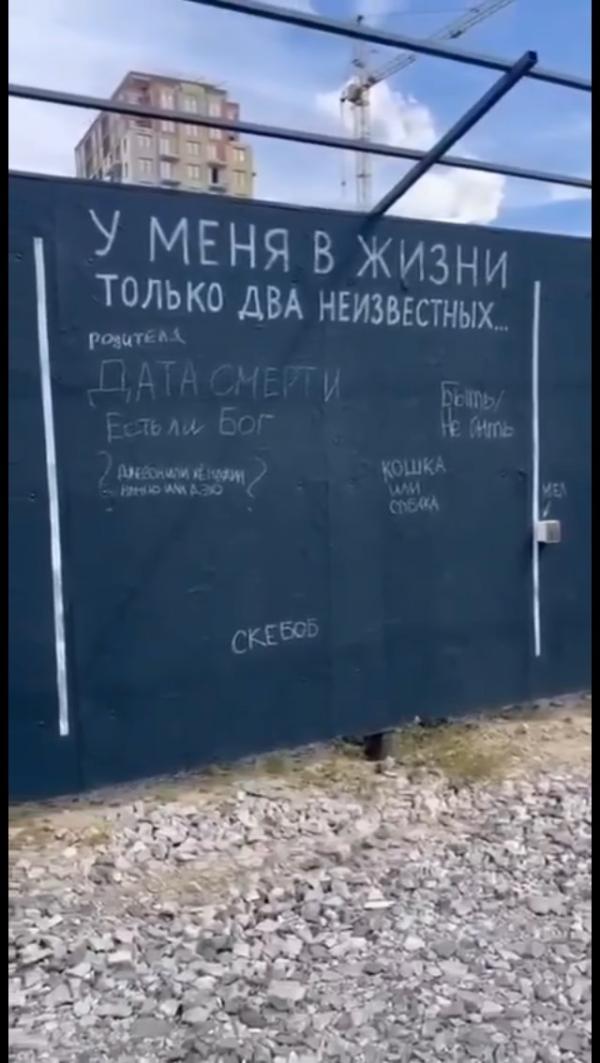 У МЕНЯ В ЖИЗНИ
ТОЛЬКО ДВА НЕИЗВЕСТНЫХ...
РОДИТЕЛЯ
ДАТА СМЕРТИ
Есть ли Бог
Быть/
Не быть
? ИЛИ ?
ИЛИ
КОШКА
ИЛИ
СОБАКА
МЕЛ
СКЕБОБ